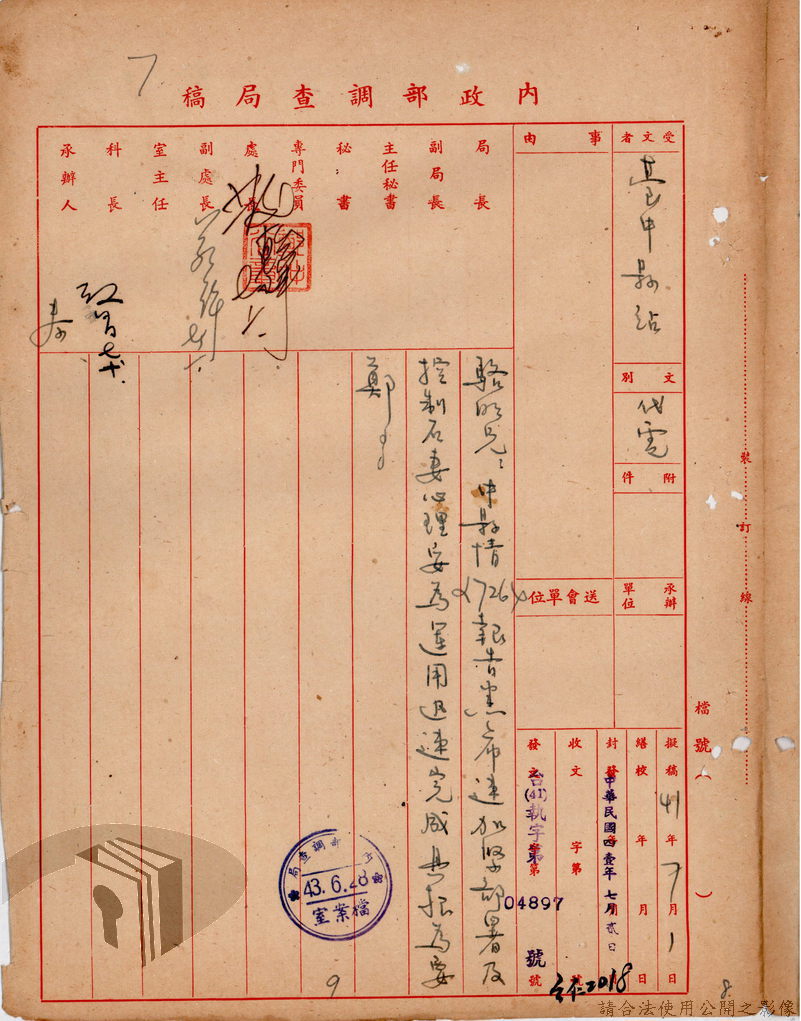 7
內政部調查局稿
受文者
臺中縣站
文別
代電
附件
承辦單位
擬稿 41年7月1日
繕校 年 月 日
封發 年 月 日
中華民國四壹年七月貳日
收文 字第 號
發文 字第 號
台(41)執字第
04897
號
2018
事由
送會單位
局長
副局長
主任秘書
秘書
專門委員
處長
副處長
室主任
科長
承辦人
駱明兄：中縣情(726)報告悉希速加緊部署及
控制石妻心理妥為運用迅速完成具報為要
鄭
調查局
43.6.28
檔案室
裝訂線
檔號（ ）
9
8.
請合法使用公開之影像